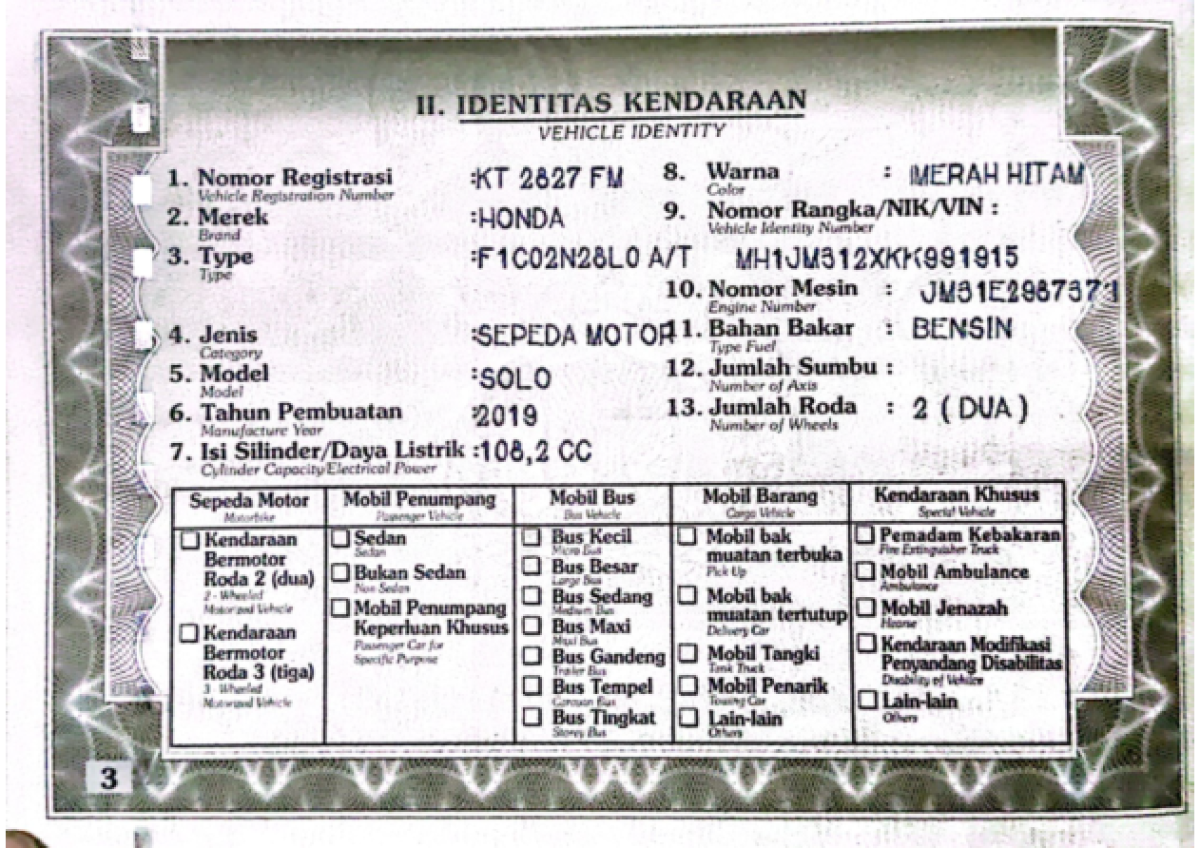 II. IDENTITAS KENDARAAN
VEHICLE IDENTITY
1. Nomor Registrasi :KT 2827 FM
Vehicle Registration Number
2. Merek :HONDA
Brand
3. Type :F1C02N28L0 A/T
Type
4. Jenis :SEPEDA MOTOR
Category
5. Model :SOLO
Model
6. Tahun Pembuatan :2019
Manufacture Year
7. Isi Silinder/Daya Listrik :108,2 CC
Cylinder Capacity/Electrical Power
8. Warna : MERAH HITAM
Color
9. Nomor Rangka/NIK/VIN :
Vehicle Identity Number
MH1JM312XKK991915
10. Nomor Mesin :
Engine Number
11. Bahan Bakar : BENSIN
Type Fuel
12. Jumlah Sumbu :
Number of Axis
13. Jumlah Roda : 2 ( DUA )
Number of Wheels
Sepeda Motor
Motorbike
Kendaraan
Bermotor
Roda 2 (dua)
2 - Wheeled
Motorized Vehicle
Kendaraan
Bermotor
Roda 3 (tiga)
3 - Wheeled
Motorized Vehicle
Mobil Penumpang
Passenger Vehicle
Sedan
Sedan
Bukan Sedan
Non Sedan
Mobil Penumpang
Keperluan Khusus
Passenger Car for
Specific Purpose
Mobil Bus
Bus Vehicle
Bus Kecil
Micro Bus
Bus Besar
Large Bus
Bus Sedang
Medium Bus
Bus Maxi
Maxi Bus
Bus Gandeng
Trailer Bus
Bus Tempel
Caravan Bus
Bus Tingkat
Storey Bus
Mobil Barang
Cargo Vehicle
Mobil bak
muatan terbuka
Pick Up
Mobil bak
muatan tertutup
Delivery Car
Mobil Tangki
Tank Truck
Mobil Penarik
Towing Car
Lain-lain
Others
Kendaraan Khusus
Special Vehicle
Pemadam Kebakaran
Fire Extinguisher Truck
Mobil Ambulance
Ambulance
Mobil Jenazah
Hearse
Kendaraan Modifikasi
Penyandang Disabilitas
Disability of Vehicle
Lain-lain
Others
3